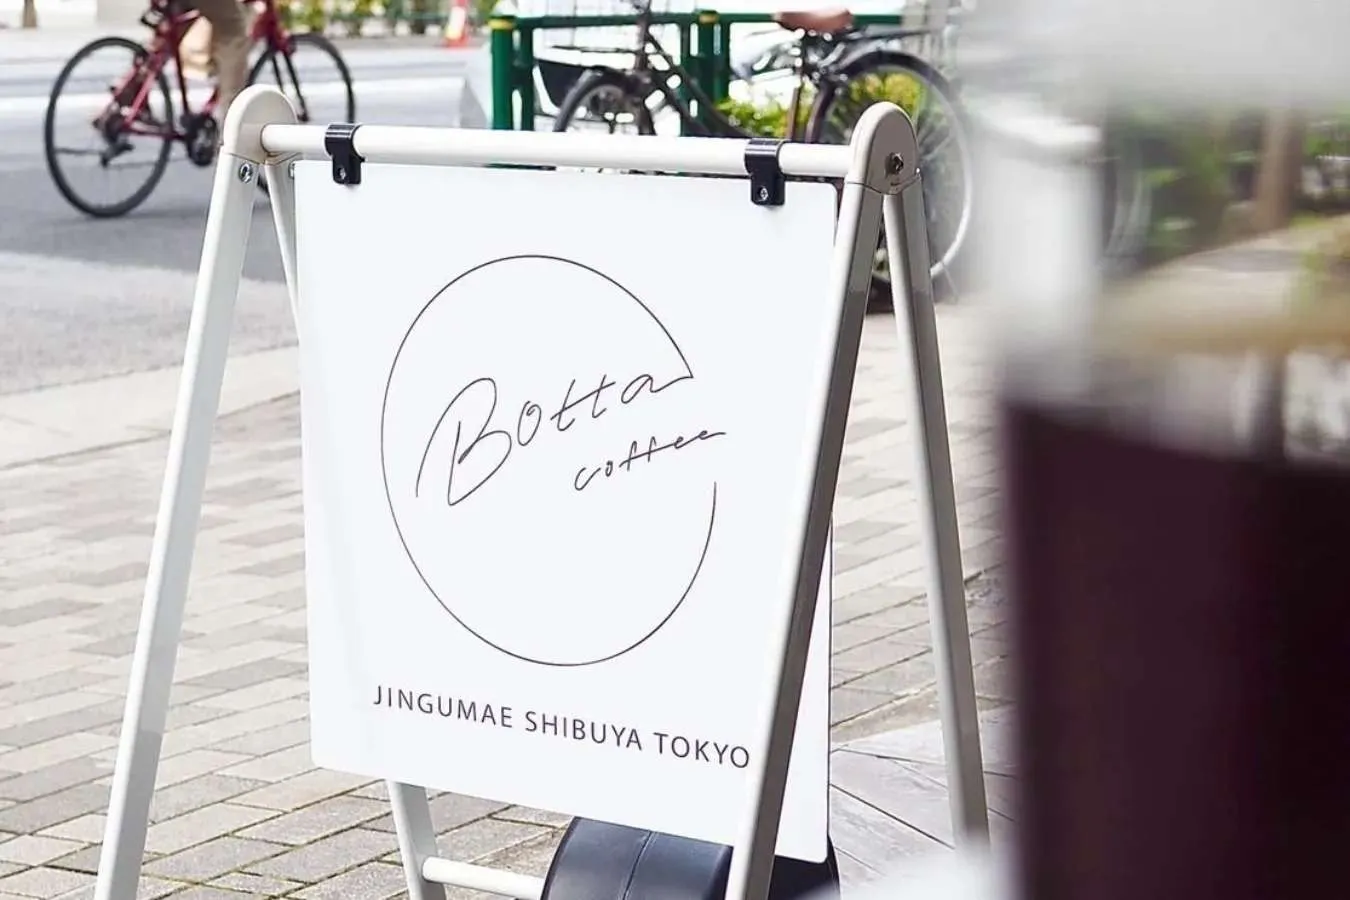 Botta
coffee
JINGUMAE SHIBUYA TOKYO